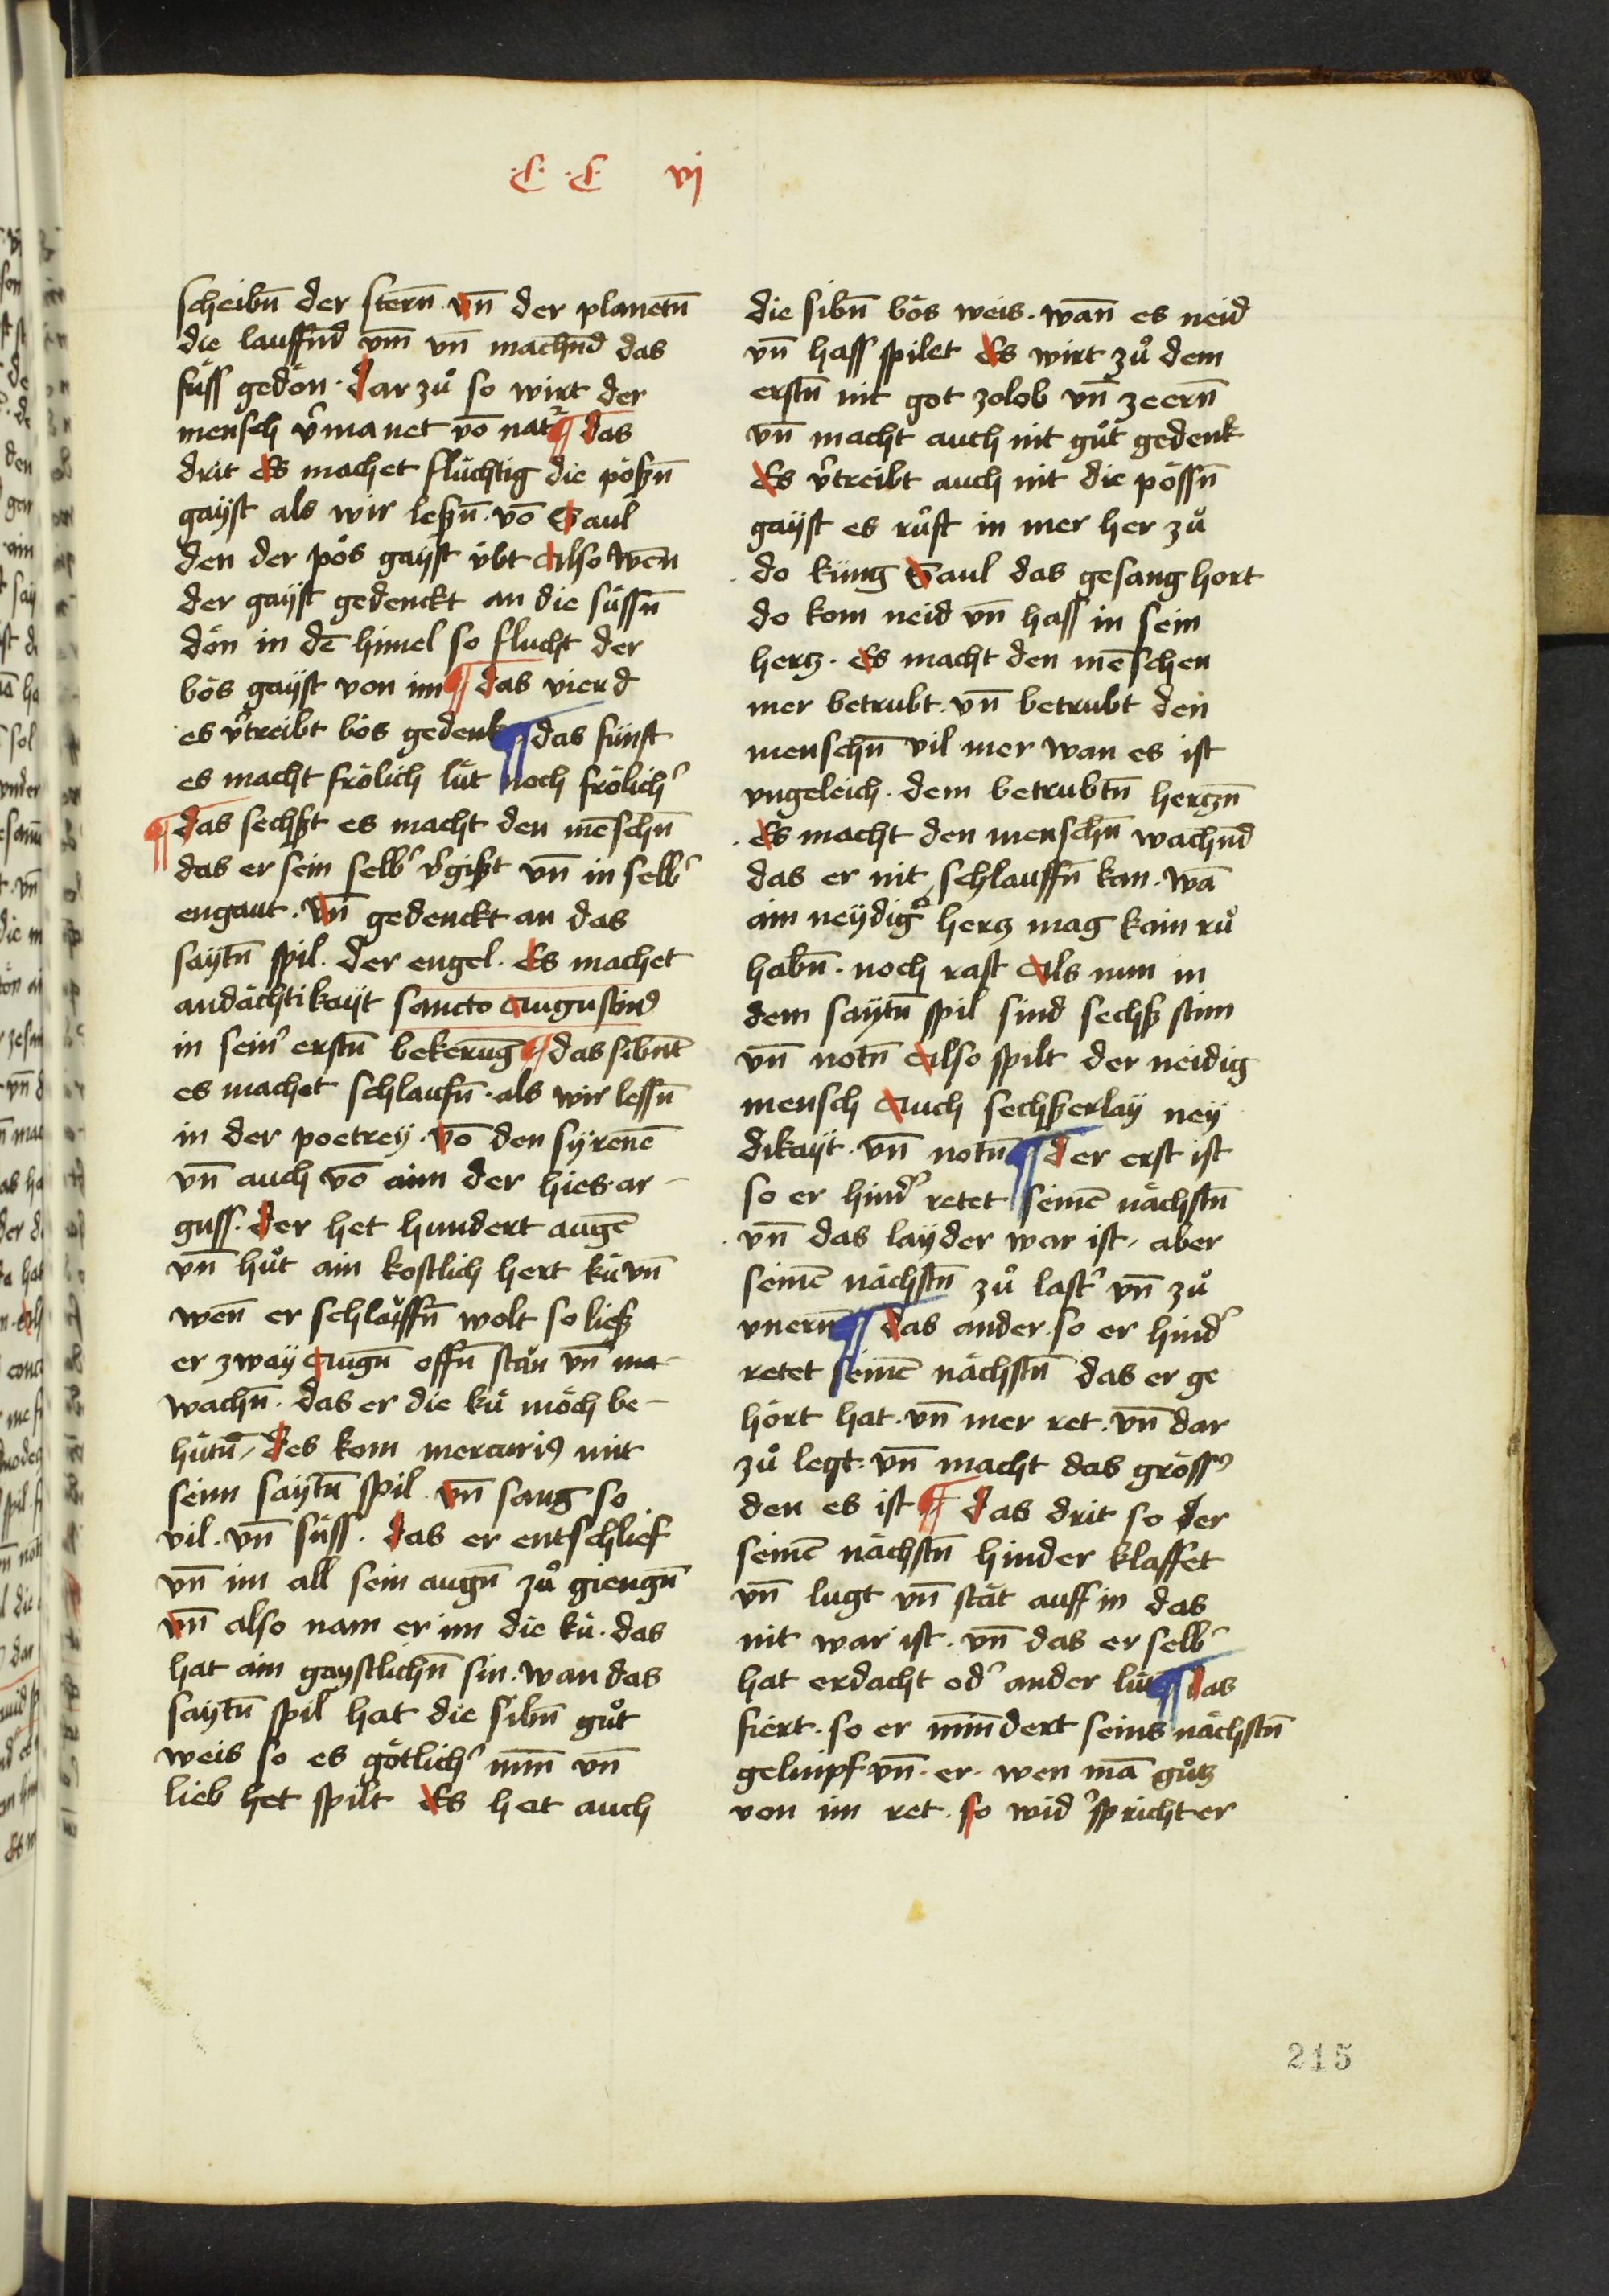 .C. .C. vj
scheibn̄ der stern̄ . vn̄ der planetn̄
die lauffnd̄ vm̄ vn̄ machnd̄ das
süss gedön . dar zů so wirt der
mensch v̾manet vō nat² ¶ das
drit Es machet flüchtig die pößn̄
gayst als wir leßn̄ . vō Saul
den der pös gayst v̈bt Also wēn
der gayst gedenckt an die süssn̄
dön in dē himel so flucht der
bös gayst von im ¶ das vierd
es v̾treibt bös gedenk ¶ das fünft
es macht frölich lüt noch frölich̾
¶ das sechßt es macht den mēschn̄
das er sein selb̾ v̾gißt vn̄ in selb̾
engaut . Vn̄ gedenckt an das
saytn̄ spil . der engel . Es machet
andächtikayt sancto Augustind
in sein̾ erstn̄ bekerūg ¶ das sibnt̄
es machet schlaufn̄ . als wir lessn̄
in der poetrey . vō den syrenē
vn̄ auch vō aim der hies . ar-
guss . der het hundert augē
vn̄ hůt ain kostlich hert kü vn̄
wen̄ er schlauffn̄ wolt so ließ
er zway Augn̄ offn̄ stān vn̄ ma-
wachn̄ . das er die kü möch be-
hütn̄ / des kom mercuri9 mit
seim saytn̄ spil vn̄ sang so
vil . vn̄ süss . das er entschlief
vn̄ im all sein augn̄ zů giengn̄
vn̄ also nam er im die kü . das
hat ain gaystlichn̄ sin . wan das
saytn̄ spil hat die sibn̄ gůt
weis so es götlich̾ min̄ vn̄
lieb het spilt Es hat auch
die sibn̄ bös weis . wan̄ es neid
vn̄ hass spilet Es wirt zů dem
erstn̄ nit got zolob vn̄ zeern̄
vn̄ macht auch nit gůt gedenk
Es v̾treibt auch nit die pössn̄
gayst es růft in mer her zů
do küng Saul das gesang hort
do kom neid vn̄ hass in sein
hertz . Es macht den mēschen
mer betrubt . vn̄ betrubt den
menschn̄ vil mer wan es ist
vngeleich . dem betrubtn̄ hertzn̄
Es macht den menschn̄ wachnd̄
das er nit schlauffn̄ kan . wā
ain neydig̾ hertz mag kain rů
habn̄ . noch rast Als nun in
dem saytn̄ spil sind sechß stim
vn̄ notn̄ Also spilt der neidig
mensch Auch sechßerlay ney
dikayt . vn̄ notn̄ ¶ der erst ist
so er hind̾ retet seinē nächstn̄
vn̄ das layder war ist / aber
seinē nächstn̄ zů last̾ vn̄ zů
vnern̄ ¶ das ander . so er hind̾
retet seinē nächstn̄ das er ge
hört hat . vn̄ mer ret . vn̄ dar
zů legt . vn̄ macht das gröss̾
den es ist ¶ das drit so der
seinē nächstn̄ hinder klaffet
vn̄ lugt vn̄ stät auff in das
nit war ist . vn̄ das er selb̾
hat erdacht od̾ ander lüt ¶ das
fiert . so er min̄dert seins nächstn̄
gelimpf vn̄ . er . wen mā gůtz
von im ret . so wid̾spricht er
215